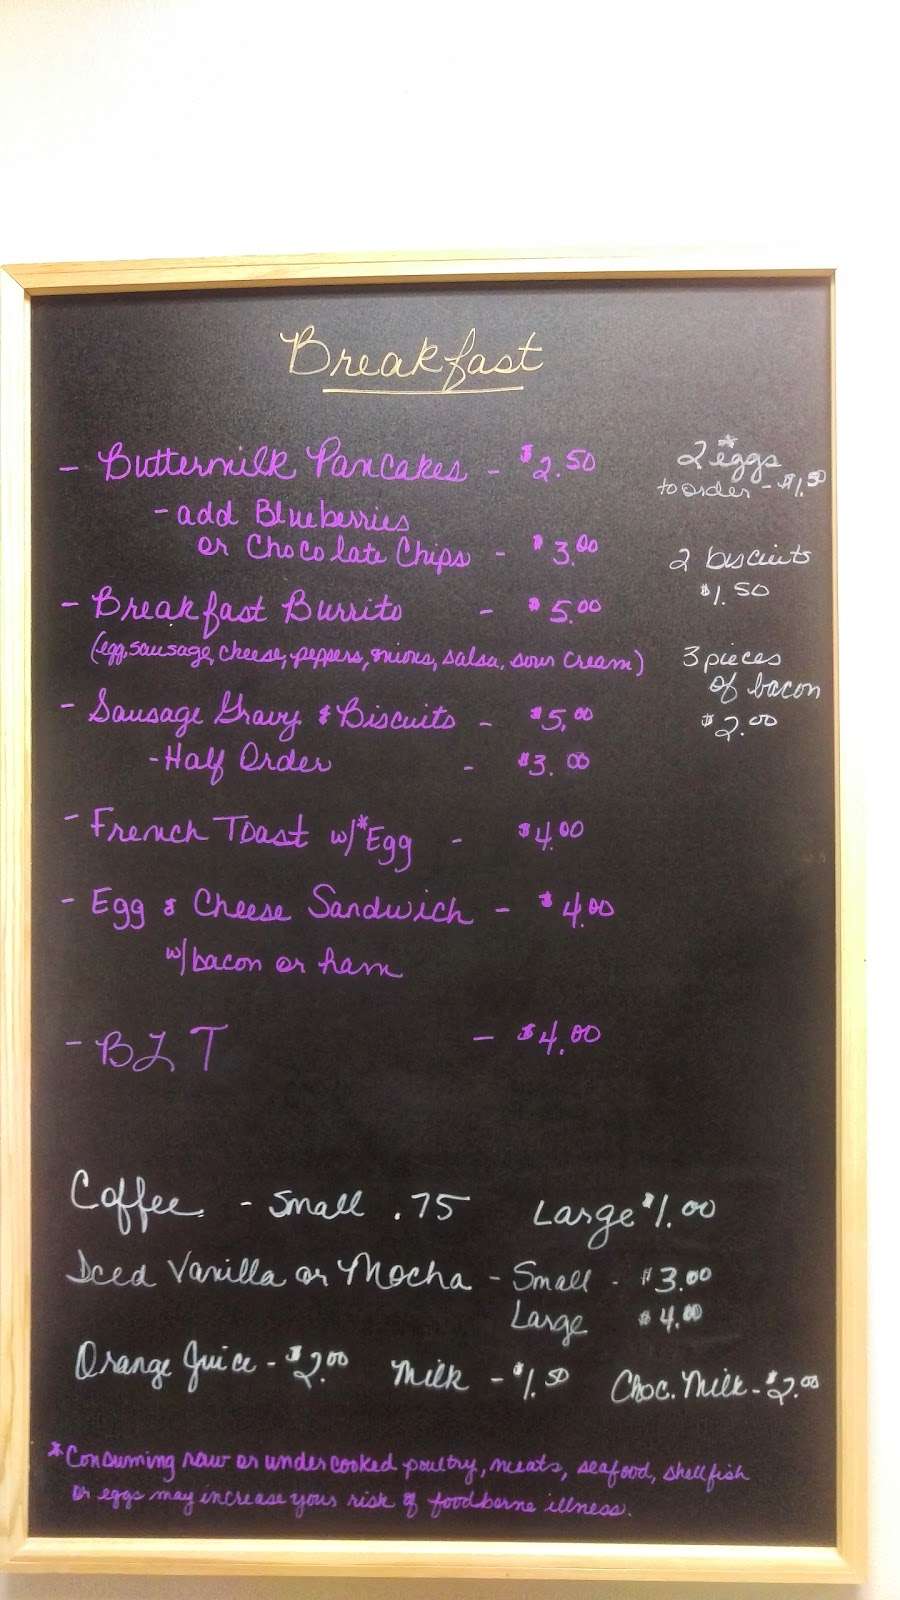 Breakfast
- Buttermilk Pancakes - $2.50
- add Blueberries
or Chocolate Chips - $3.00
- Breakfast Burrito - $5.00
(egg, sausage, cheese, peppers, onions, salsa, sour cream)
- Sausage Gravy & Biscuits - $5.00
- Half Order - $3.00
- French Toast w/*Egg - $4.00
- Egg & Cheese Sandwich - $4.00
w/bacon or ham
- BLT - $4.00
2 *eggs
to order - $1.50
2 biscuits
$1.50
3 pieces
of bacon
$2.00
Coffee - Small .75 Large $1.00
Iced Vanilla or Mocha - Small - $3.00
Large $4.00
Orange Juice - $2.00 Milk - $1.50 Choc. Milk - $2.00
*Consuming raw or undercooked poultry, meats, seafood, shellfish
or eggs may increase your risk of foodborne illness.